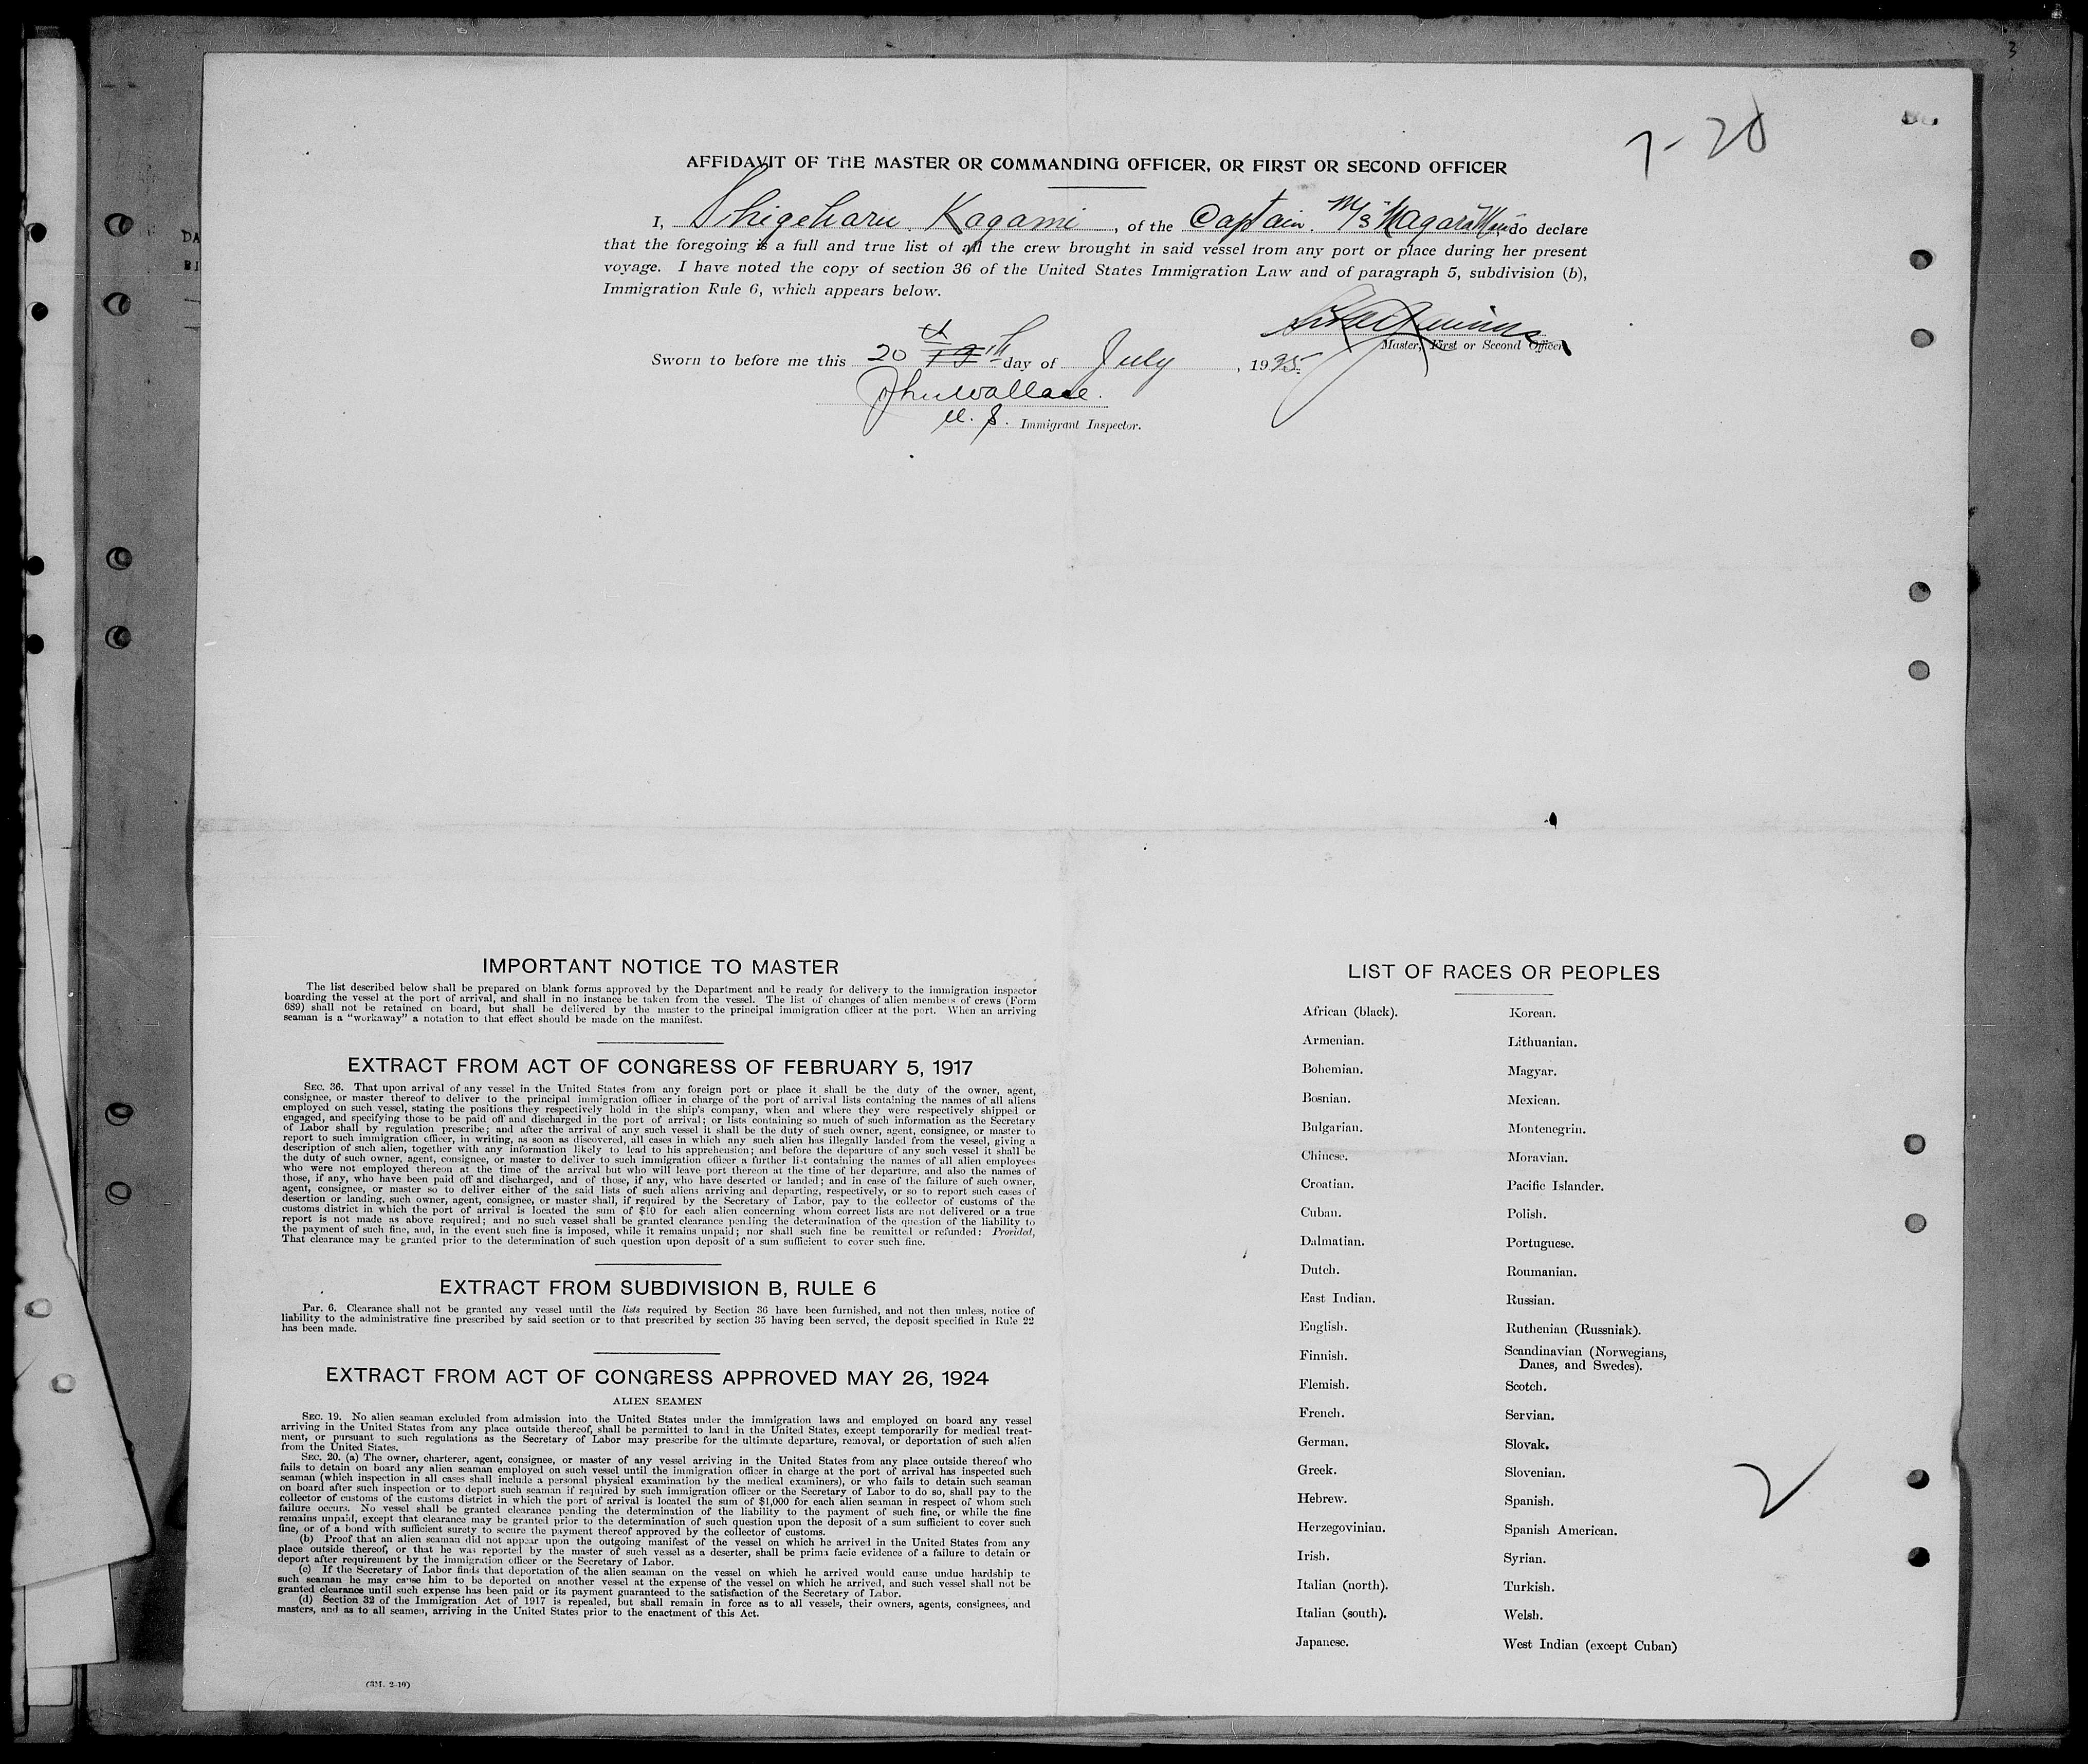 3
7-20
DA
BI
AFFIDAVIT OF THE MASTER OR COMMANDING OFFICER, OR FIRST OR SECOND OFFICER
I, Shigeharu Kagami, of the Captain. M/S "Nagara Maru" do declare
that the foregoing is a full and true list of all the crew brought in said vessel from any port or place during her present
voyage. I have noted the copy of section 36 of the United States Immigration Law and of paragraph 5, subdivision (b),
Immigration Rule 6, which appears below.
Master, First or Second Officer
Sworn to before me this 20th 19th day of July, 1935.
Jno Wallace.
U. S. Immigrant Inspector.
IMPORTANT NOTICE TO MASTER
The list described below shall be prepared on blank forms approved by the Department and be ready for delivery to the immigration inspector
boarding the vessel at the port of arrival, and shall in no instance be taken from the vessel. The list of changes of alien members of crews (Form
689) shall not be retained on board, but shall be delivered by the master to the principal immigration officer at the port. When an arriving
seaman is a "workaway" a notation to that effect should be made on the manifest.
EXTRACT FROM ACT OF CONGRESS OF FEBRUARY 5, 1917
SEC. 36. That upon arrival of any vessel in the United States from any foreign port or place it shall be the duty of the owner, agent,
consignee, or master thereof to deliver to the principal immigration officer in charge of the port of arrival lists containing the names of all aliens
employed on such vessel, stating the positions they respectively hold in the ship's company, when and where they were respectively shipped or
engaged, and specifying those to be paid off and discharged in the port of arrival; or lists containing so much of such information as the Secretary
of Labor shall by regulation prescribe; and after the arrival of any such vessel it shall be the duty of such owner, agent, consignee, or master to
report to such immigration officer, in writing, as soon as discovered, all cases in which any such alien has illegally landed from the vessel, giving a
description of such alien, together with any information likely to lead to his apprehension; and before the departure of any such vessel it shall be
the duty of such owner, agent, consignee, or master to deliver to such immigration officer a further list containing the names of all alien employees
who were not employed thereon at the time of the arrival but who will leave port thereon at the time of her departure, and also the names of
those, if any, who have been paid off and discharged, and of those, if any, who have deserted or landed; and in case of the failure of such owner,
agent, consignee, or master so to deliver either of the said lists of such aliens arriving and departing, respectively, or so to report such cases of
desertion or landing, such owner, agent, consignee, or master shall, if required by the Secretary of Labor, pay to the collector of customs of the
customs district in which the port of arrival is located the sum of $10 for each alien concerning whom correct lists are not delivered or a true
report is not made as above required; and no such vessel shall be granted clearance pending the determination of the question of the liability to
the payment of such fine, and, in the event such fine is imposed, while it remains unpaid; nor shall such fine be remitted or refunded: Provided,
That clearance may be granted prior to the determination of such question upon deposit of a sum sufficient to cover such fine.
EXTRACT FROM SUBDIVISION B, RULE 6
Par. 6. Clearance shall not be granted any vessel until the lists required by Section 36 have been furnished, and not then unless, notice of
liability to the administrative fine prescribed by said section or to that prescribed by section 35 having been served, the deposit specified in Rule 22
has been made.
EXTRACT FROM ACT OF CONGRESS APPROVED MAY 26, 1924
ALIEN SEAMEN
SEC. 19. No alien seaman excluded from admission into the United States under the immigration laws and employed on board any vessel
arriving in the United States from any place outside thereof, shall be permitted to land in the United States, except temporarily for medical treat-
ment, or pursuant to such regulations as the Secretary of Labor may prescribe for the ultimate departure, removal, or deportation of such alien
from the United States.
SEC. 20. (a) The owner, charterer, agent, consignee, or master of any vessel arriving in the United States from any place outside thereof who
fails to detain on board any alien seaman employed on such vessel until the immigration officer in charge at the port of arrival has inspected such
seaman (which inspection in all cases shall include a personal physical examination by the medical examiners), or who fails to detain such seaman
on board after such inspection or to deport such seaman if required by such immigration officer or the Secretary of Labor to do so, shall pay to the
collector of customs of the customs district in which the port of arrival is located the sum of $1,000 for each alien seaman in respect of whom such
failure occurs. No vessel shall be granted clearance pending the determination of the liability to the payment of such fine, or while the fine
remains unpaid, except that clearance may be granted prior to the determination of such question upon the deposit of a sum sufficient to cover such
fine, or of a bond with sufficient surety to secure the payment thereof approved by the collector of customs.
(b) Proof that an alien seaman did not appear upon the outgoing manifest of the vessel on which he arrived in the United States from any
place outside thereof, or that he was reported by the master of such vessel as a deserter, shall be prima facie evidence of a failure to detain or
deport after requirement by the immigration officer or the Secretary of Labor.
(c) If the Secretary of Labor finds that deportation of the alien seaman on the vessel on which he arrived would cause undue hardship to
such seaman he may cause him to be deported on another vessel at the expense of the vessel on which he arrived, and such vessel shall not be
granted clearance until such expense has been paid or its payment guaranteed to the satisfaction of the Secretary of Labor.
(d) Section 32 of the Immigration Act of 1917 is repealed, but shall remain in force as to all vessels, their owners, agents, consignees, and
masters, and as to all seamen, arriving in the United States prior to the enactment of this Act.
LIST OF RACES OR PEOPLES
African (black).
Armenian.
Bohemian.
Bosnian.
Bulgarian.
Chinese.
Croatian.
Cuban.
Dalmatian.
Dutch.
East Indian.
English.
Finnish.
Flemish.
French.
German.
Greek.
Hebrew.
Herzegovinian.
Irish.
Italian (north).
Italian (south).
Japanese.
Korean.
Lithuanian.
Magyar.
Mexican.
Montenegrin.
Moravian.
Pacific Islander.
Polish.
Portuguese.
Roumanian.
Russian.
Ruthenian (Russniak).
Scandinavian (Norwegians,
Danes, and Swedes).
Scotch.
Servian.
Slovak.
Slovenian.
Spanish.
Spanish American.
Syrian.
Turkish.
Welsh.
West Indian (except Cuban)
2